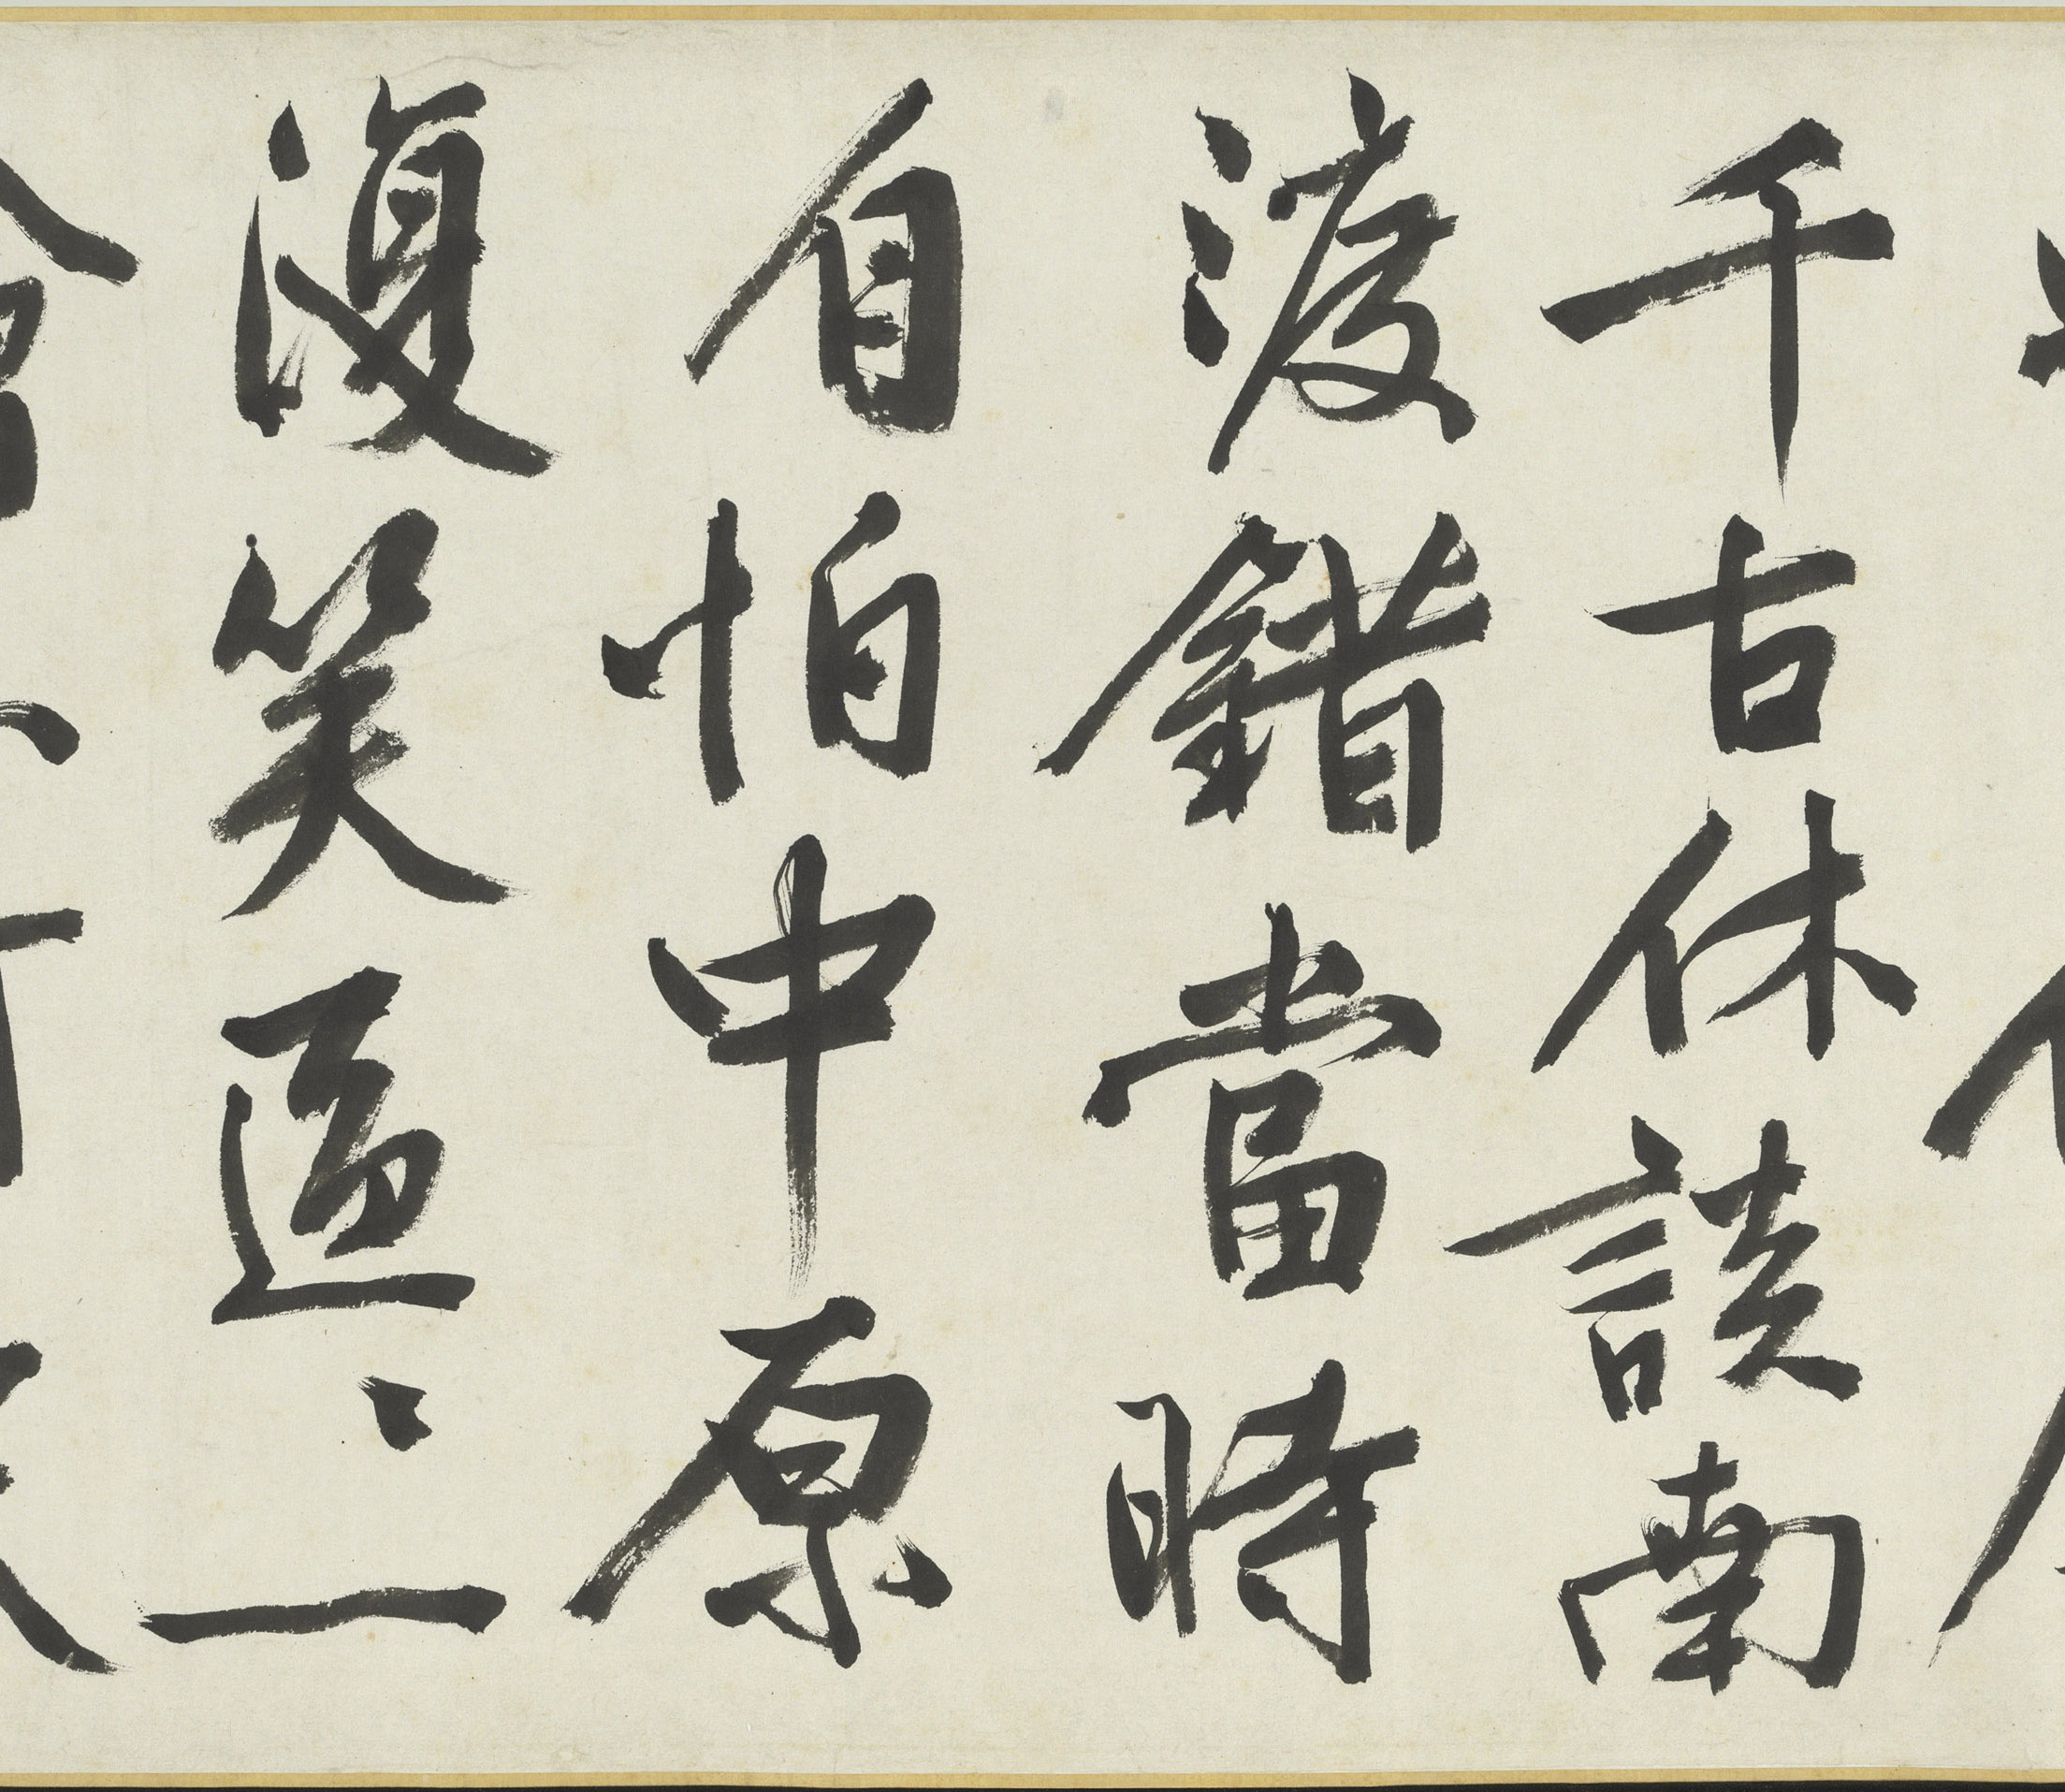 千古休談南
渡錯當時
自怕中原
復笑區〻一